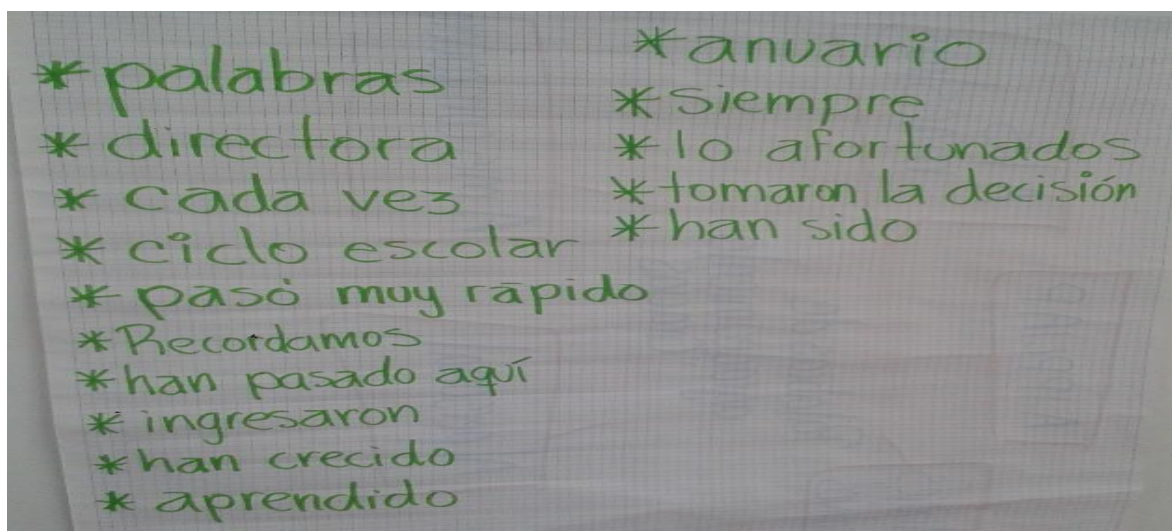 * palabras
* directora
* cada vez
* ciclo escolar
* pasó muy rápido
* Recordamos
* han pasado aquí
* ingresaron
* han crecido
* aprendido
* anuario
* Siempre
* lo afortunados
* tomaron la decisión
* han sido